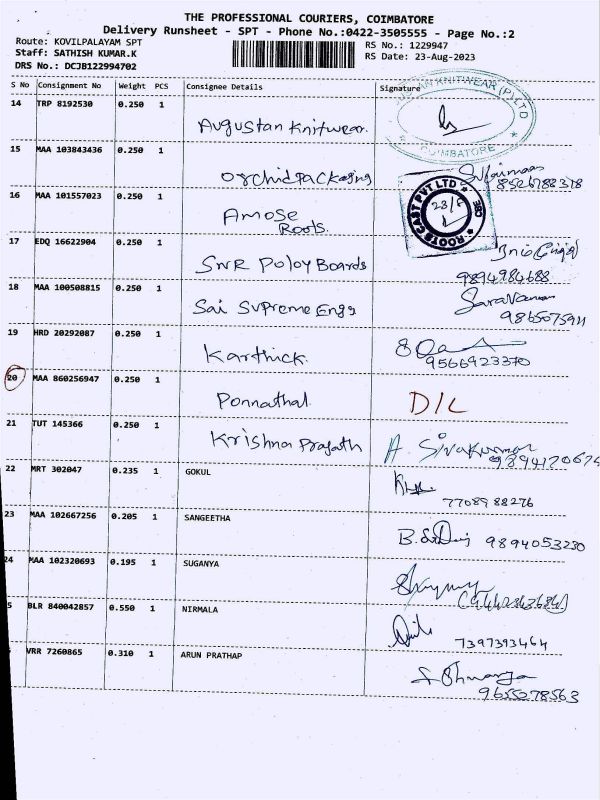 THE PROFESSIONAL COURIERS, COIMBATORE
Delivery Runsheet - SPT - Phone No.:0422-3505555 - Page No.:2
Route: KOVILPALAYAM SPT
RS No.: 1229947
Staff: SATHISH KUMAR.K
RS Date: 23-Aug-2023
DRS No.: DCJB122994702
S No Consignment No Weight PCS Consignee Details Signature
14 TRP 8192530 0.250 1 Augustan Knitwear.
KNITWEAR (P) LTD
COIMBATORE
15 MAA 103843436 0.250 1 Orchid Packaging
8526788378
16 MAA 101557023 0.250 1 Amose
Roots.
ROOTS CAST PVT LTD CBE
23/8
17 EDQ 16622904 0.250 1 SNR Poloy Boards
9894984688
18 MAA 100508815 0.250 1 Sai Supreme Engg
Saravanan
9865075911
19 HRD 20292087 0.250 1 Karthick.
9566923370
20 MAA 860256947 0.250 1 Ponnathal D/L
21 TUT 145366 0.250 1 Krishna Prajath A. Sivakumar
22 MRT 302047 0.235 1 GOKUL
7708988276
23 MAA 102667256 0.205 1 SANGEETHA
9894053230
24 MAA 102320693 0.195 1 SUGANYA
5 BLR 840042857 0.550 1 NIRMALA
7397393464
VRR 7260865 0.310 1 ARUN PRATHAP
9655278563